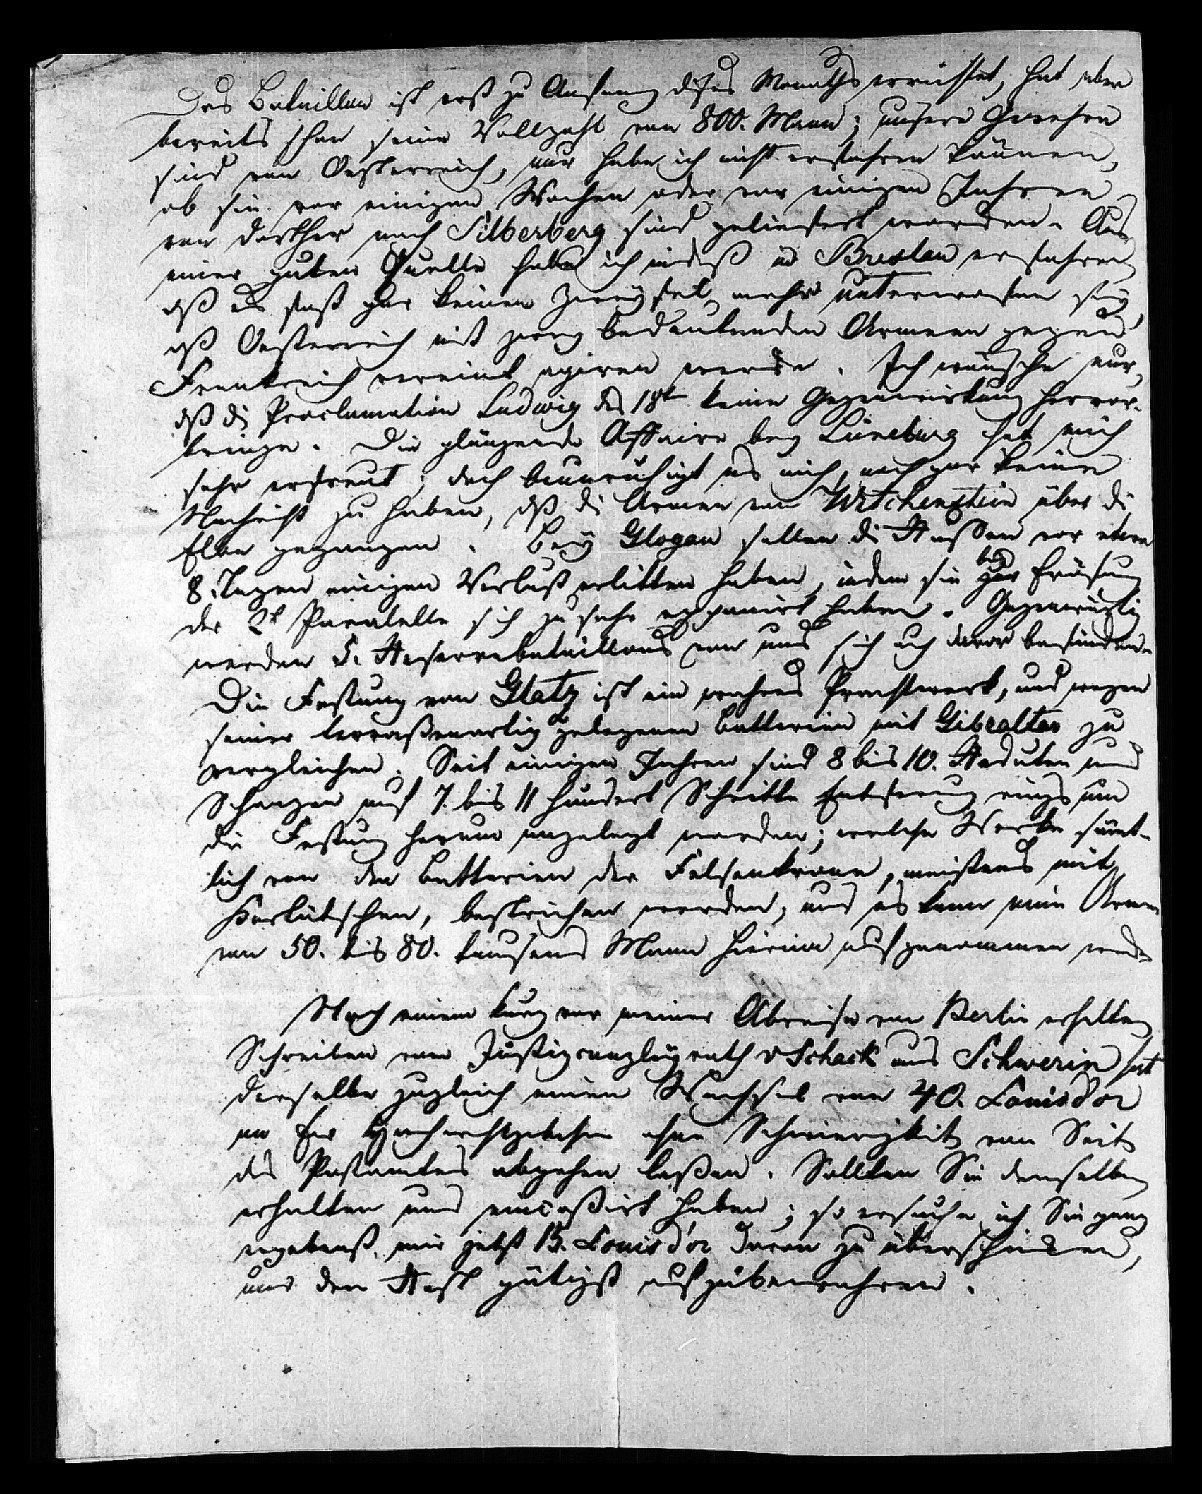 Das Bataillon ist erst zu Anfang dieses Monaths errichtet, hat aber
bereits schon seine Vollzahl von 800. Mann; unsere Gewehre
sind von Oesterreich, nur habe ich nicht erfahren können,
ob sie vor einigen Wochen oder vor einigen Jahren
von dorther nach Silberberg sind geliefert worden. Aus
einer guten Quelle habe ich indeß in Breslau erfahren
dß es fast gar keinen Zweifel mehr unterworfen sey,
dß Oesterreich mit zwey bedeutenden Armeen gegen
Frankreich vereint agiren werde. Ich wünsche nur,
dß di Proclamation Ludwig des 18t keine Gegenwirkung hervor-
bringe. Die glänzende Affaire bey Lüneburg hat mich
sehr erfreut; doch beunruhigt es mich, noch gar keine
Nachricht zu haben, dß di Armee von Witchenstein über di
Elbe gegangen. Bey Glogau sollen di Russen vor etwa
8. Tagen einigen Verlust erlitten haben, indem sie bey Eröfnung
der 2t Paralelle sich zu sehr exponirt haben. Gegenwärtig
werden 5. Reservebataillons von uns sich uch davor befinden.
Die Festung von Glatz ist ein wahres Prachtwerk, und wegen
seiner terraßenartig gelegenen Batterien mit Gibraltar zu
vergleichen. Seit einigen Jahren sind 8 bis 10. Reduten und
Schanzen auf 7. bis 11 hundert Schritte Entfernung rings um
die Festung herum angelegt worden; welche Werke sämt-
lich von den Batterien der Felsenkrone, meistens mit
Kartätschen, bestrichen werden, und es kann eine Armee
von 50. bis 80. tausend Mann hierin aufgenommen werden
Nach einem kurz vor meiner Abreise von Berlin erhaltenen
Schreiben vom Justizcanzleyrath v Schack aus Schwerin hat
derselbe zugleich einen Wechsel von 40. Louisdor
an Ew Hochwohlgebohren ohne Schwierigkeit von Seite
des Postamtes abgehen laßen. Sollten Sie denselben
erhalten und eincaßirt haben; so ersuche ich Sie ganz
ergebenst, mir jetzt 15. Louis d'or davon zu überschicken,
und den Rest gütigst aufzubewahren.